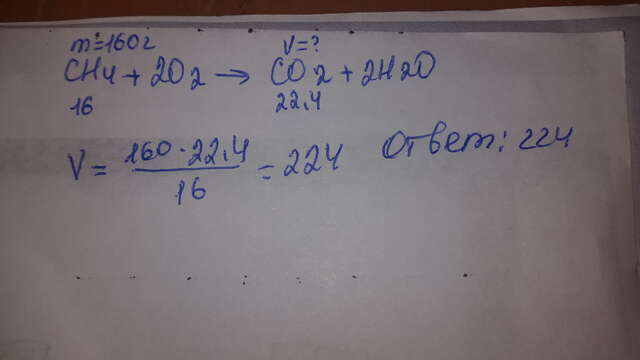 m=160г V=?
CH4 + 2O2 → CO2 + 2H2O
16 22,4
V = 160·22,4 / 16 = 224 Ответ: 224